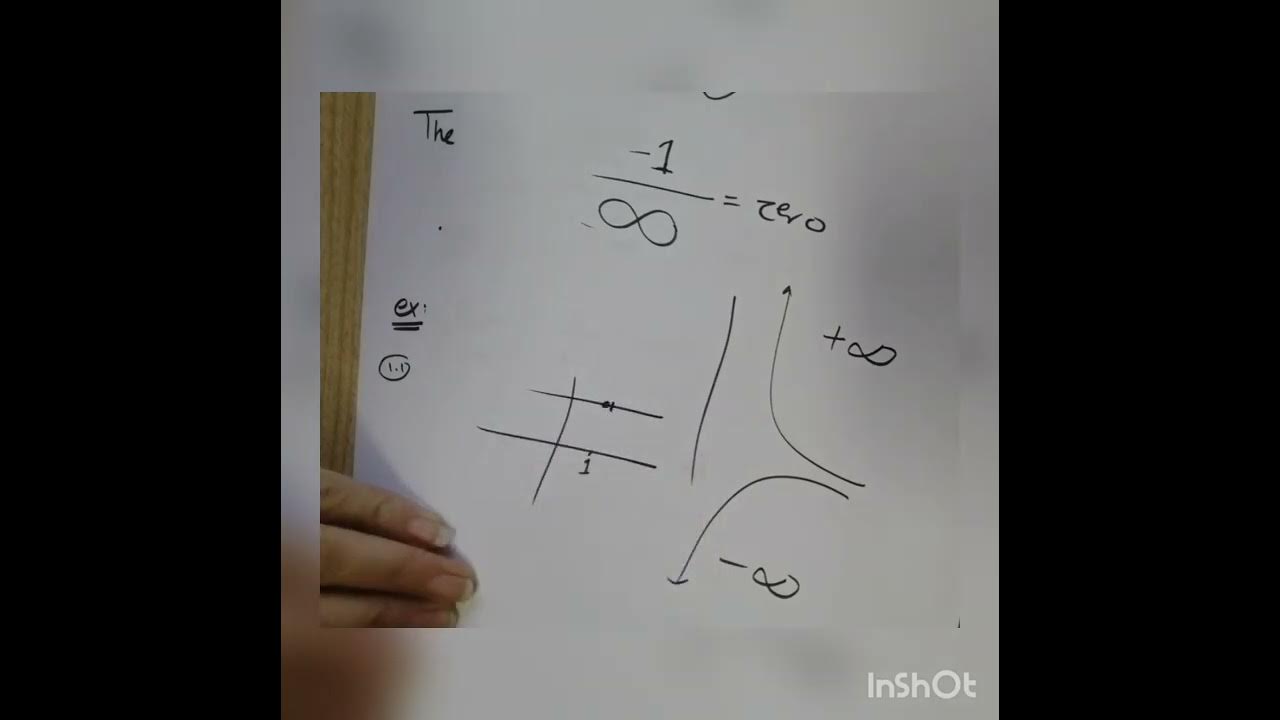 The
-1
∞
= zero
ex:
1.1
+∞
1
-∞
InShOt